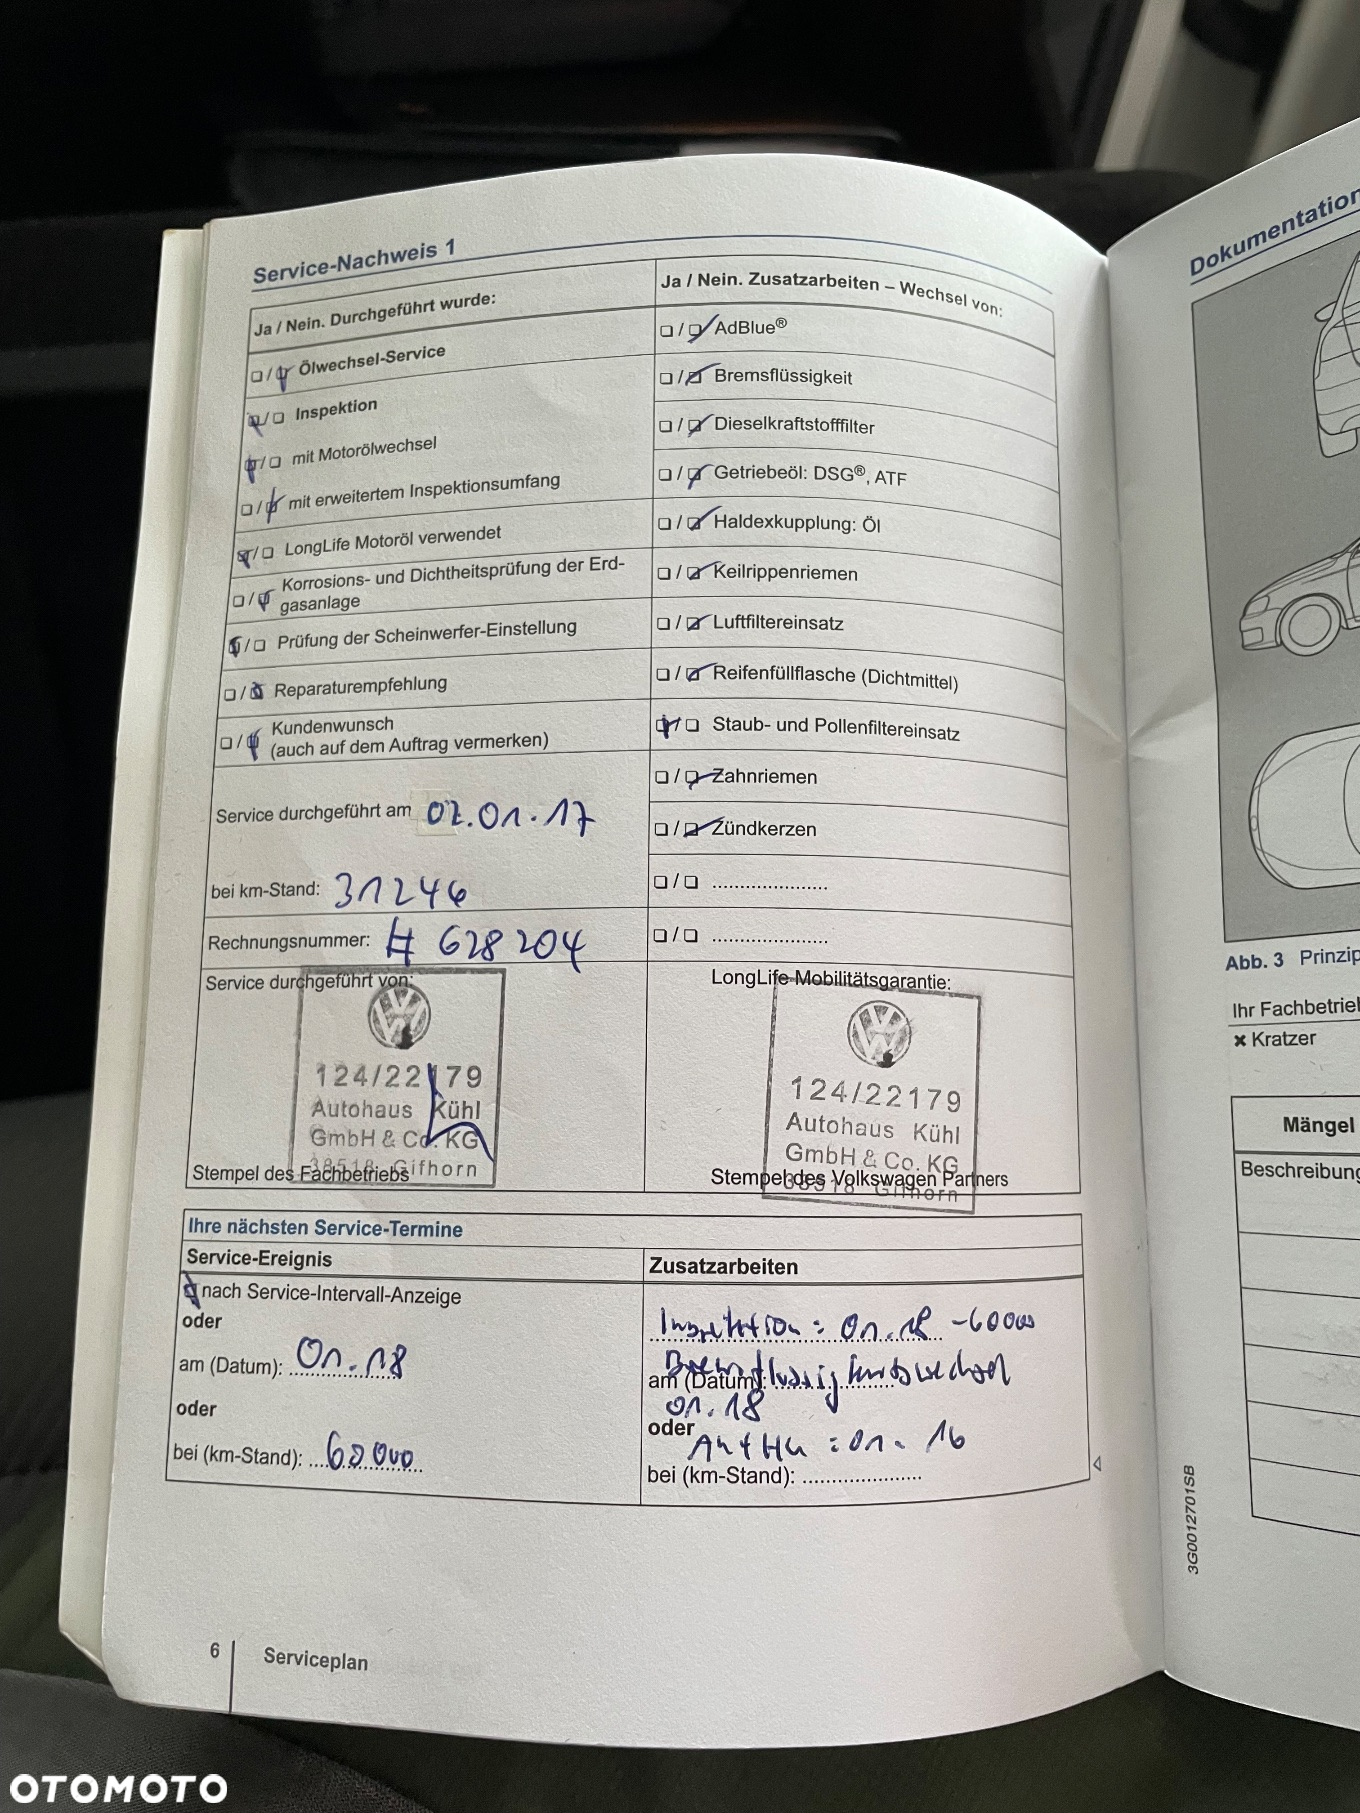 Service-Nachweis 1
Ja / Nein. Durchgeführt wurde:
❏ / ❏ Ölwechsel-Service
❏ / ❏ Inspektion
❏ / ❏ mit Motorölwechsel
❏ / ❏ mit erweitertem Inspektionsumfang
❏ / ❏ LongLife Motoröl verwendet
❏ / ❏ Korrosions- und Dichtheitsprüfung der Erd-
gasanlage
❏ / ❏ Prüfung der Scheinwerfer-Einstellung
❏ / ❏ Reparaturempfehlung
❏ / ❏ Kundenwunsch
(auch auf dem Auftrag vermerken)
Service durchgeführt am 02.01.17
bei km-Stand: 31246
Rechnungsnummer: # 628204
Ja / Nein. Zusatzarbeiten – Wechsel von:
❏ / ❏ AdBlue®
❏ / ❏ Bremsflüssigkeit
❏ / ❏ Dieselkraftstofffilter
❏ / ❏ Getriebeöl: DSG®, ATF
❏ / ❏ Haldexkupplung: Öl
❏ / ❏ Keilrippenriemen
❏ / ❏ Luftfiltereinsatz
❏ / ❏ Reifenfüllflasche (Dichtmittel)
❏ / ❏ Staub- und Pollenfiltereinsatz
❏ / ❏ Zahnriemen
❏ / ❏ Zündkerzen
❏ / ❏ ......................
❏ / ❏ ......................
Service durchgeführt von:
124/22179
Autohaus Kühl
GmbH & Co. KG
38518 Gifhorn
Stempel des Fachbetriebs
LongLife Mobilitätsgarantie:
124/22179
Autohaus Kühl
GmbH & Co. KG
38518 Gifhorn
Stempel des Volkswagen Partners
Ihre nächsten Service-Termine
Service-Ereignis
❏ nach Service-Intervall-Anzeige
oder
am (Datum): 01.18
oder
bei (km-Stand): 60000
Zusatzarbeiten
Inspektion: 01.18 - 60000
Bremsflüssigkeitswechsel
am (Datum):
01.18
oder
: 01.
bei (km-Stand): ......................
6
Serviceplan
Dokumentation
Abb. 3 Prinzip
Ihr Fachbetrieb
✖ Kratzer
Mängel
Beschreibung
3G0012701SB
OTOMOTO